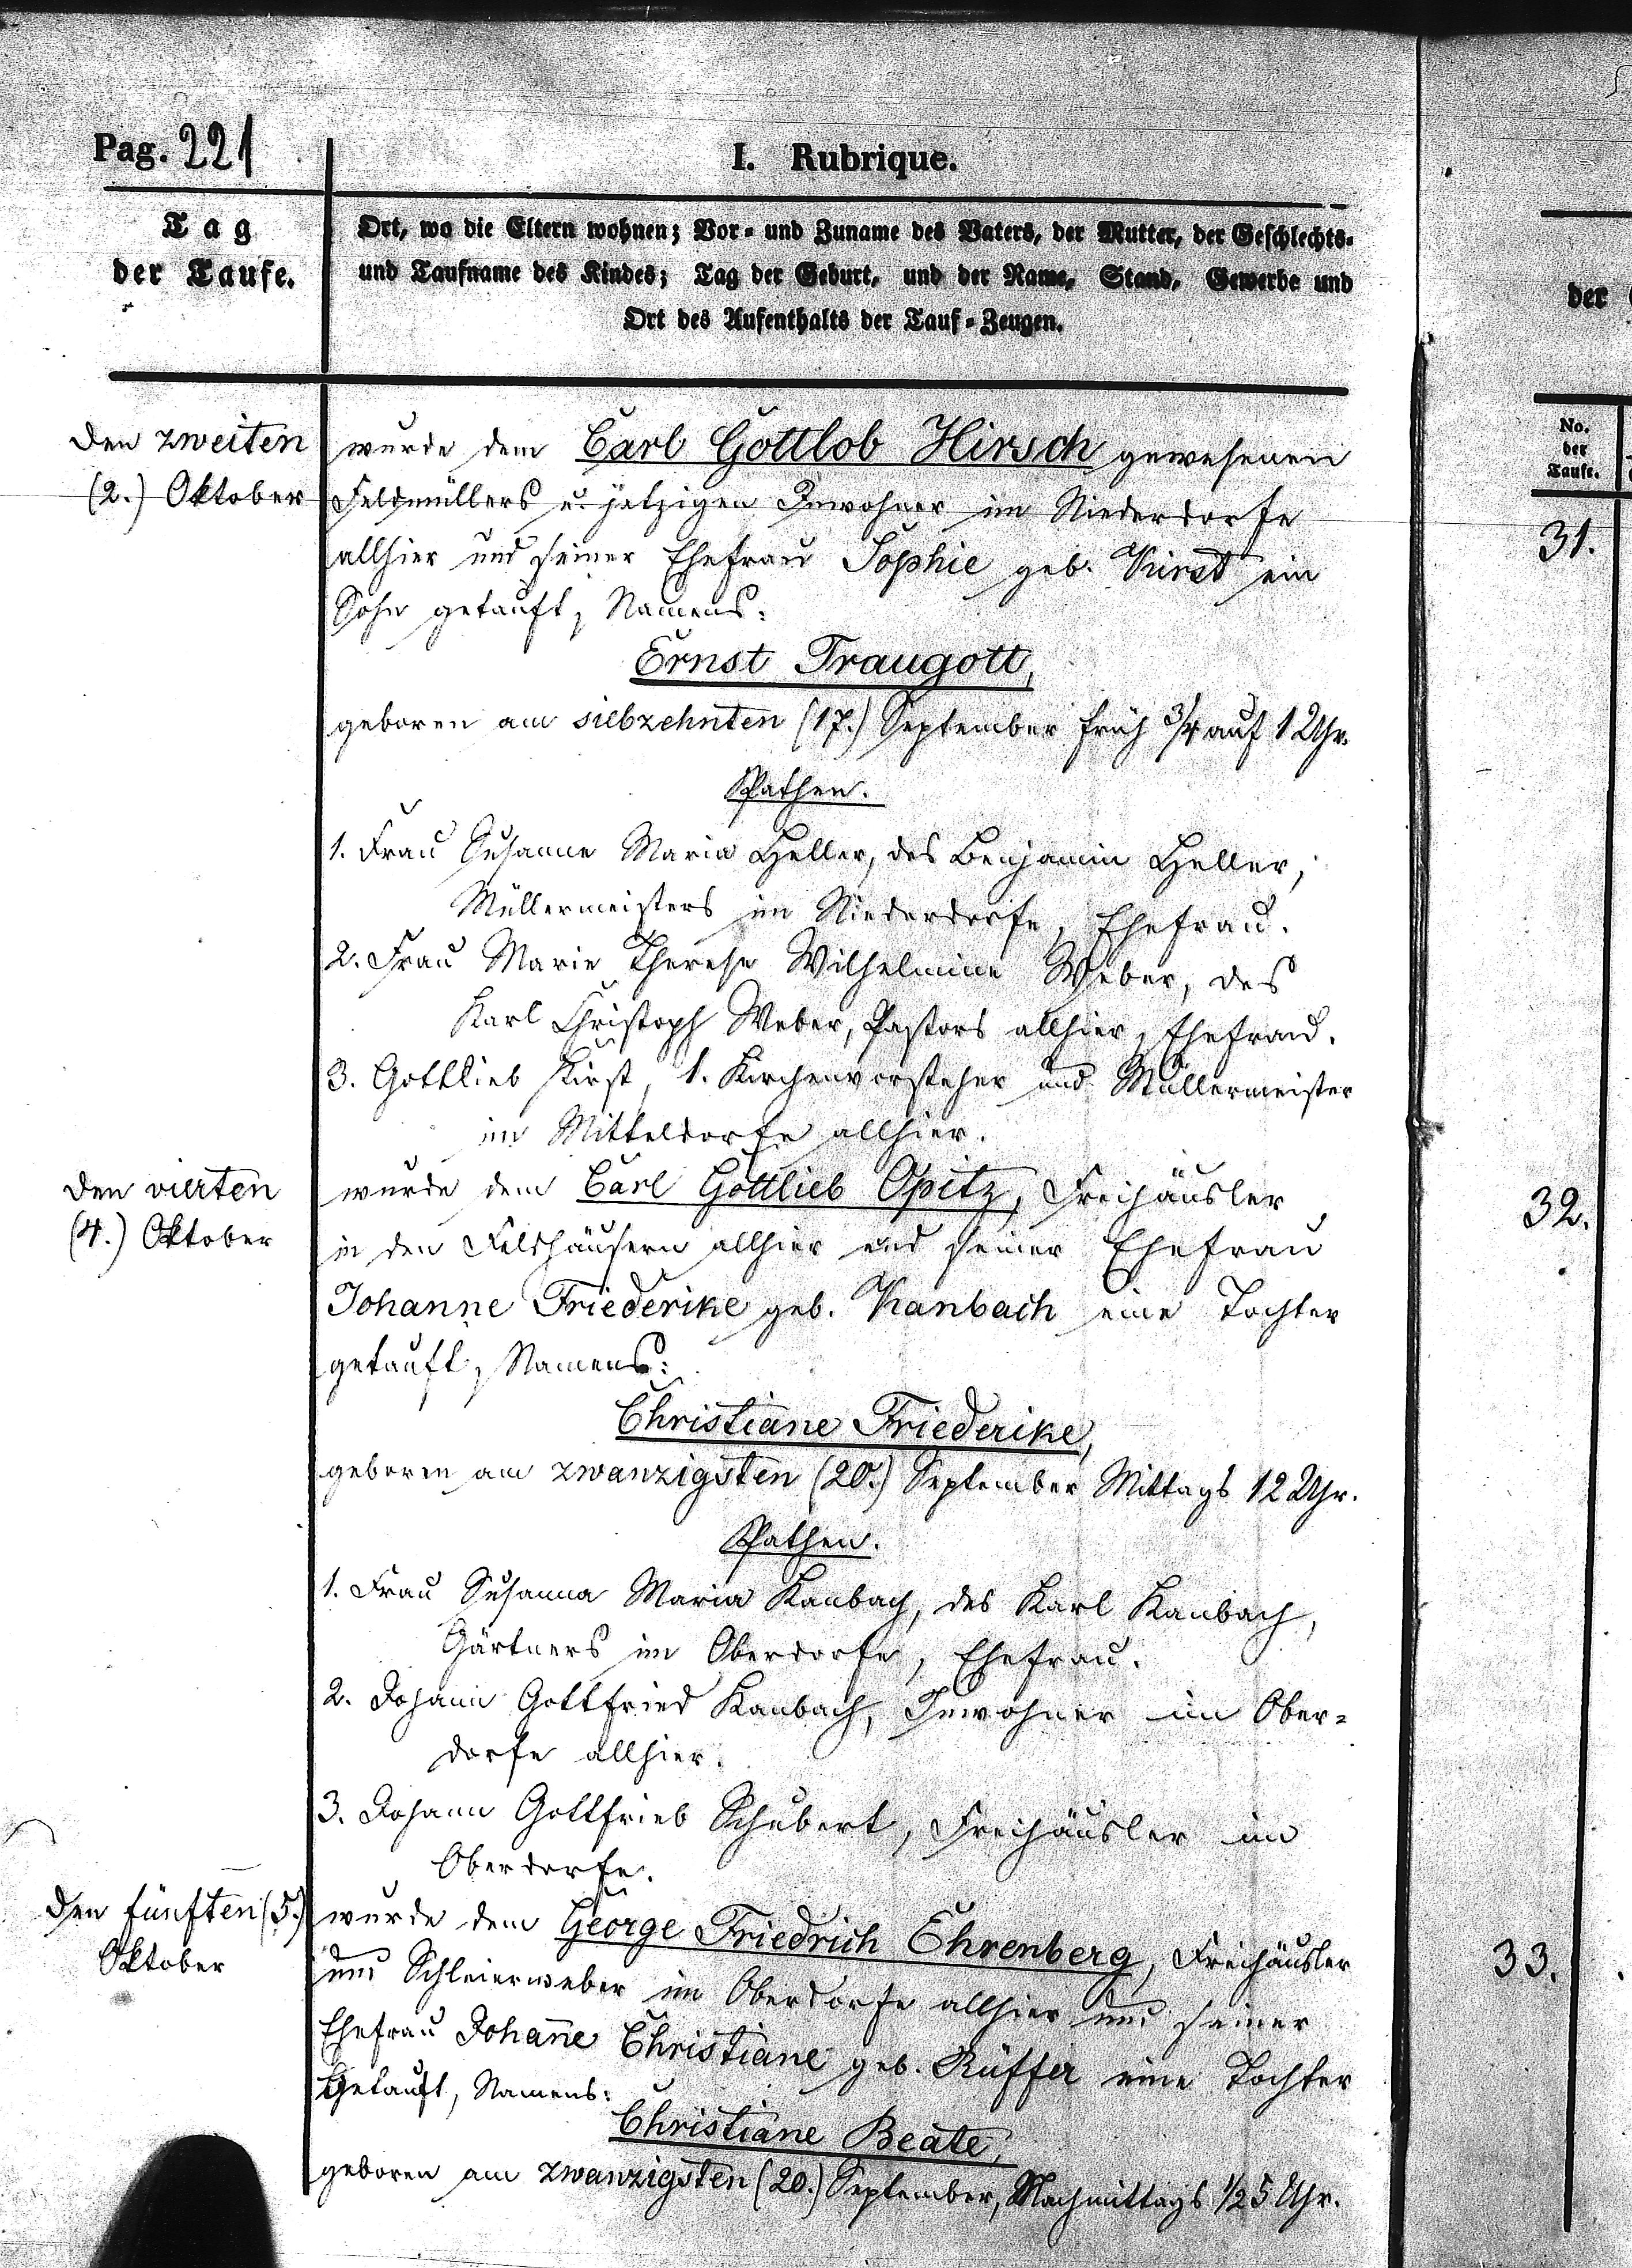 Pag. 221
I. Rubrique.
Tag
der Taufe.
Ort, wo die Eltern wohnen; Vor- und Zuname des Vaters, der Mutter, der Geschlechts-
und Taufname des Kindes; Tag der Geburt, und der Name, Stand, Gewerbe und
Ort des Aufenthalts der Tauf-Zeugen.
den zweiten
(2.) Oktober
wurde dem Carl Gottlob Hirsch gewesenen
Feldmüllers u. jetzigen Inwohner im Niederdorfe
allhier und seiner Ehefrau Sophie geb. Kirst ein
Sohn getauft, Namens:
Ernst Traugott,
geboren am siebzehnten (17.) September früh 3/4 auf 1 Uhr.
Pathen.
1. Frau Susanne Maria Heller, des Benjamin Heller,
Müllermeisters im Niederdorfe, Ehefrau.
2. Frau Marie Therese Wilhelmine Weber, des
Karl Christoph Weber, Pastors allhier, Ehefrau.
3. Gottlieb Kirst, 1. Kirchenvorsteher und Müllermeister
im Mitteldorfe allhier.
den vierten
(4.) Oktober
wurde dem Carl Gottlieb Opitz, Freihäusler
in den Feldhäusern allhier und seiner Ehefrau
Johanne Friederike geb. Kanbach eine Tochter
getauft, Namens:
Christiane Friederike,
geboren am zwanzigsten (20.) September Mittags 12 Uhr.
Pathen.
1. Frau Susanna Maria Kanbach, des Karl Kanbach,
Gärtners im Oberdorfe, Ehefrau.
2. Johann Gottfried Kanbach, Inwohner im Ober-
dorfe allhier.
3. Johann Gottfrieb Schubert, Freihäusler im
Oberdorfe.
den fünften (5.)
Oktober
wurde dem George Friedrich Ehrenberg, Freihäusler
und Schleierweber im Oberdorfe allhier und seiner
Ehefrau Johan̄e Christiane geb. Rüffer eine Tochter
Getauft, Namens:
Christiane Beate,
geboren am zwanzigsten (20.) September, Nachmittags 1/2 5 Uhr.
der
No.
der
Taufe.
31.
32.
33.